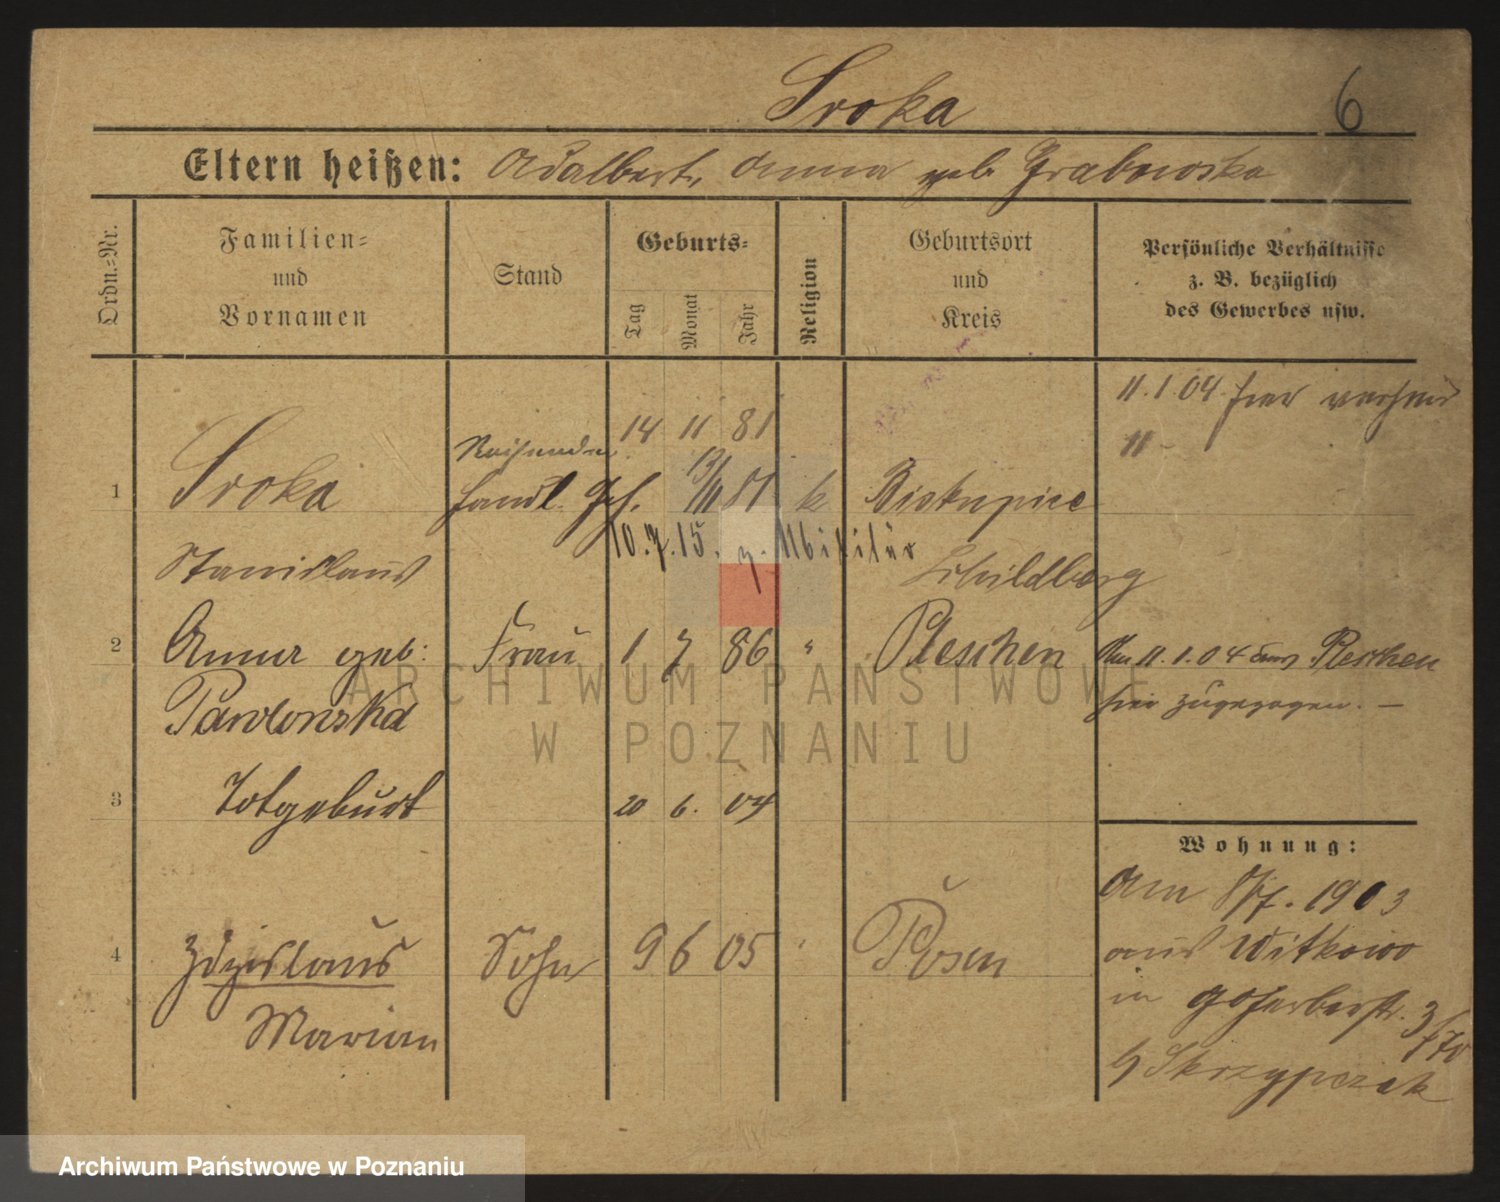 Sroka 6
Eltern heißen: Adalbert, Anna geb. Grabowska
Ordn.=Nr.
Familien=
und
Vornamen
Stand
Geburts=
Tag Monat Jahr
Religion
Geburtsort
und
Kreis
Persönliche Verhältnisse
z. B. bezüglich
des Gewerbes usw.
14 11 81
Reisender
1 Sroka Handl. Geh. 13/11 81 k Biskupice
11. 1 04. hier
10.7.15. z. Militär
Stanislaus Schildberg
2 Anna geb: Frau 1 7 86 " Pleschen
Pawlonska
Am 11. 1. 04 aus Pleschen
hier zugezogen. —
3 Totgeburt 20 6. 04
4 Zdzislaus Sohn 9 6 05 " Posen
Marian
Wohnung:
Am 1903
aus Witkowo
in Gr. Gerberstr. 3
b/ Skrzypczak
ARCHIWUM PAŃSTWOWE
W POZNANIU
Archiwum Państwowe w Poznaniu